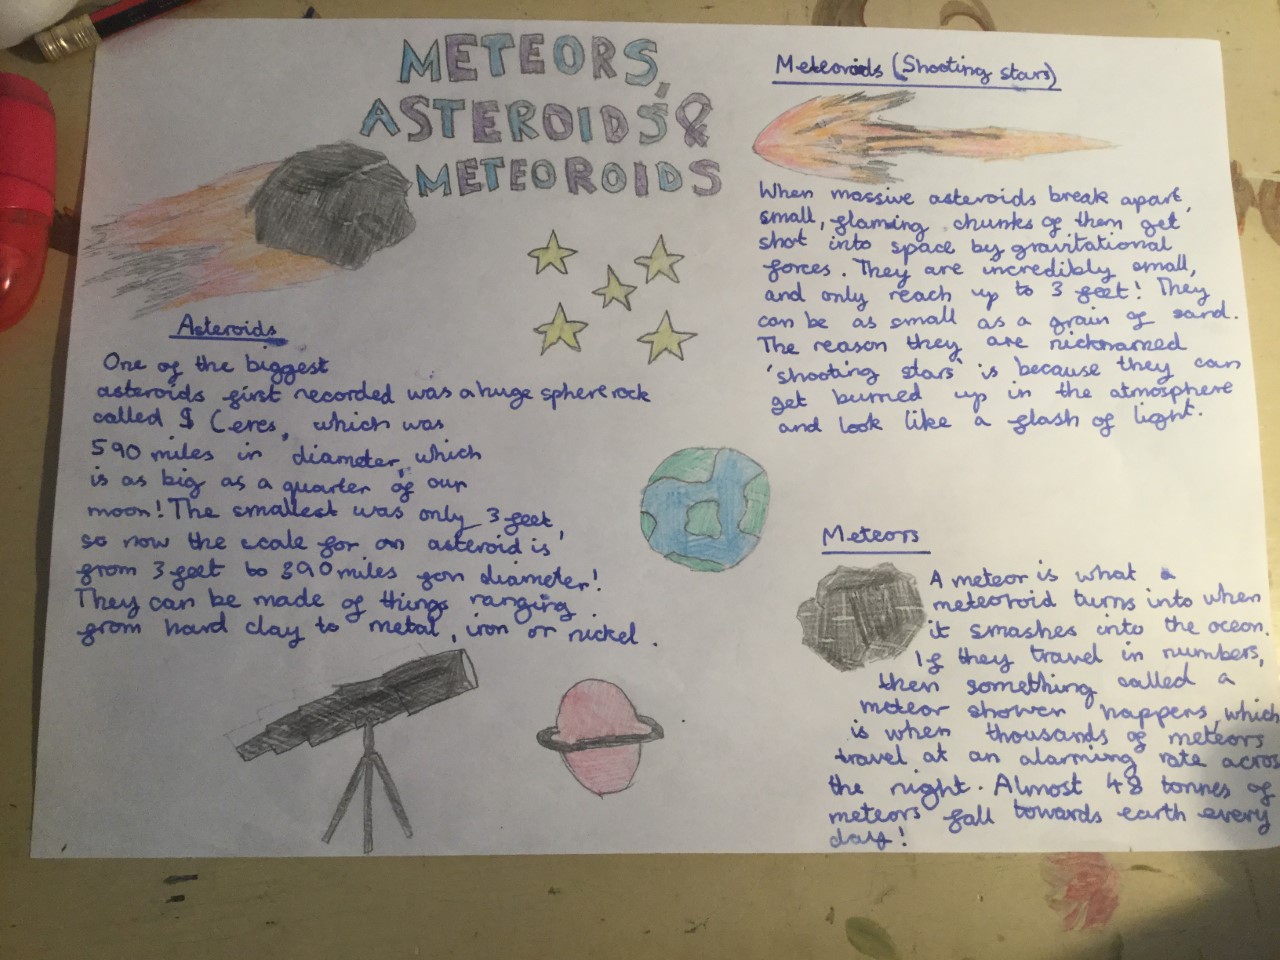 METEORS,
ASTEROIDS &
METEOROIDS
Asteroids
One of the biggest
asteroids first recorded was a huge sphere rock
called $ Ceres, which was
590 miles in diameter, which
is as big as a quarter of our
moon! The smallest was only 3 feet,
so now the scale for an asteroid is
from 3 feet to 590 miles for diameter!
They can be made of things ranging
from hard clay to metal, iron or nickel.
Meteoroids (Shooting stars)
When massive asteroids break apart,
small, flaming chunks of them get
shot into space by gravitational
forces. They are incredibly small,
and only reach up to 3 feet! They
can be as small as a grain of sand.
The reason they are nicknamed
'shooting stars' is because they can
get burned up in the atmosphere
and look like a flash of light.
Meteors
A meteor is what a
meteoroid turns into when
it smashes into the ocean.
If they travel in numbers,
then something called a
meteor shower happens, which
is when thousands of meteors
travel at an alarming rate across
the night. Almost 48 tonnes of
meteors fall towards earth every
day!